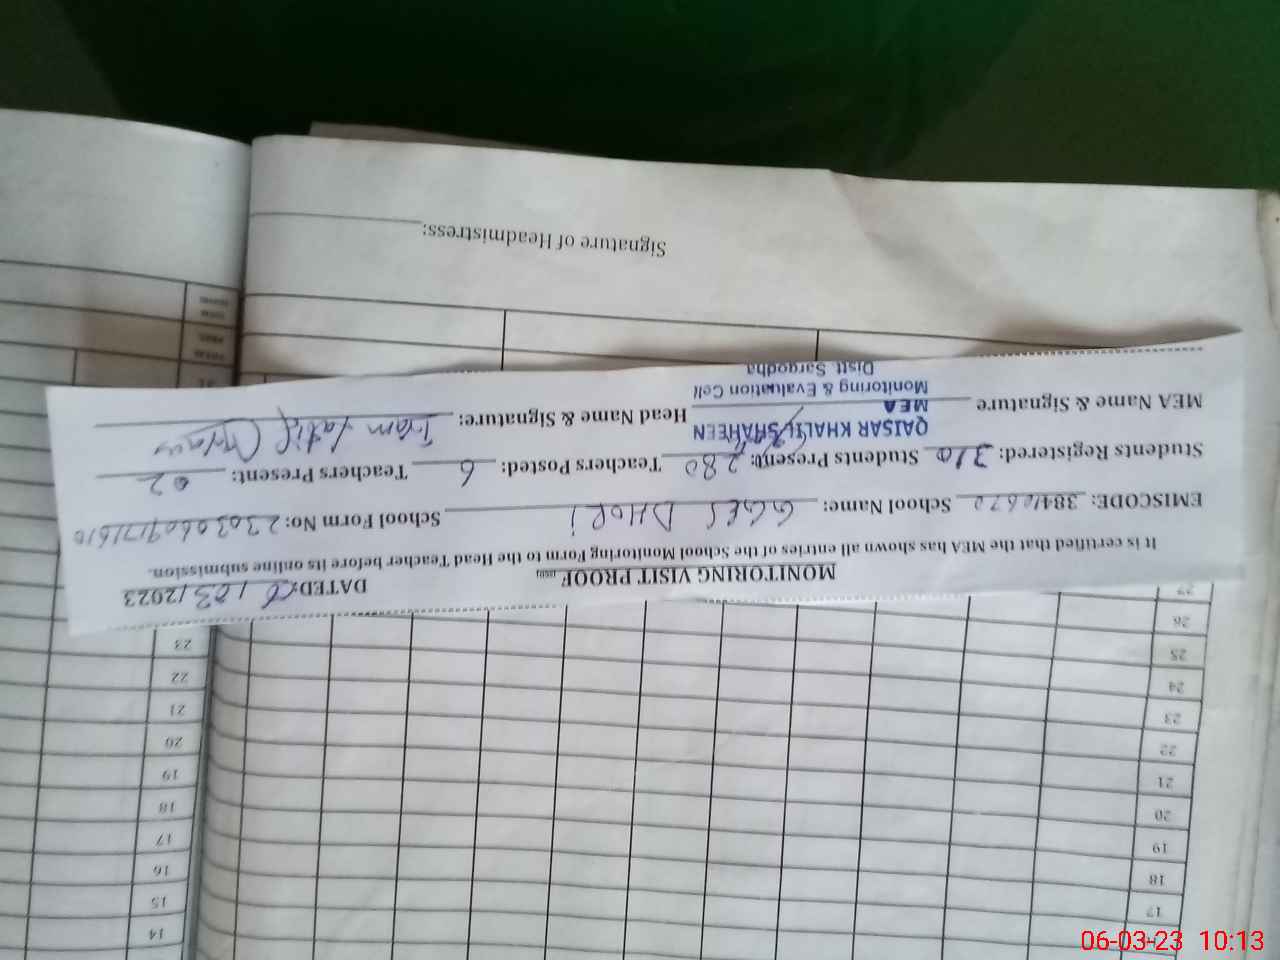 MONITORING VISIT PROOF
DATED: 06/03/2023
It is certified that the MEA has shown all entries of the School Monitoring Form to the Head Teacher before its online submission.
EMISCODE: 38410670 School Name: GGES DHORI School Form No: 2303060917161610
Students Registered: 310 Students Present: 280 Teachers Posted: 6 Teachers Present: 02
MEA Name & Signature Head Name & Signature: Iram Latif
QAISAR KHALIL SHAHEEN
MEA
Monitoring & Evaluation Cell
Distt. Sargodha
Signature of Headmistress:
14
15
16
17
18
19
20
21
22
23
17
18
19
20
21
22
23
24
25
26
27
06-03-23 10:13